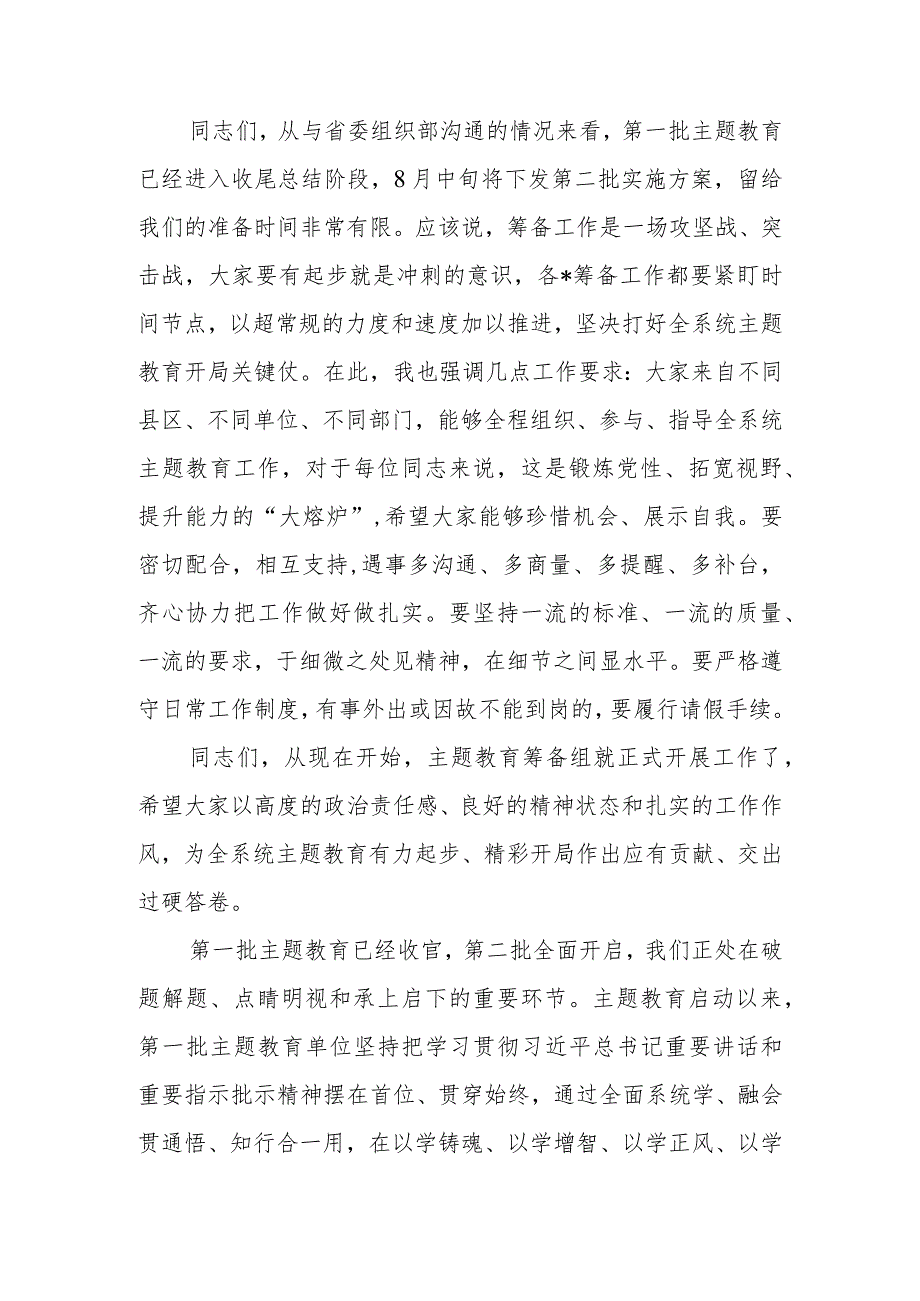 同志们，从与省委组织部沟通的情况来看，第一批主题教育
已经进入收尾总结阶段，8月中旬将下发第二批实施方案，留给
我们的准备时间非常有限。应该说，筹备工作是一场攻坚战、突
击战，大家要有起步就是冲刺的意识，各*筹备工作都要紧盯时
间节点，以超常规的力度和速度加以推进，坚决打好全系统主题
教育开局关键仗。在此，我也强调几点工作要求：大家来自不同
县区、不同单位、不同部门，能够全程组织、参与、指导全系统
主题教育工作，对于每位同志来说，这是锻炼党性、拓宽视野、
提升能力的“大熔炉”,希望大家能够珍惜机会、展示自我。要
密切配合，相互支持,遇事多沟通、多商量、多提醒、多补台，
齐心协力把工作做好做扎实。要坚持一流的标准、一流的质量、
一流的要求，于细微之处见精神，在细节之间显水平。要严格遵
守日常工作制度,有事外出或因故不能到岗的,要履行请假手续。
同志们，从现在开始，主题教育筹备组就正式开展工作了，
希望大家以高度的政治责任感、良好的精神状态和扎实的工作作
风，为全系统主题教育有力起步、精彩开局作出应有贡献、交出
过硬答卷。
第一批主题教育已经收官，第二批全面开启，我们正处在破
题解题、点睛明视和承上启下的重要环节。主题教育启动以来，
第一批主题教育单位坚持把学习贯彻习近平总书记重要讲话和
重要指示批示精神摆在首位、贯穿始终，通过全面系统学、融会
贯通悟、知行合一用，在以学铸魂、以学增智、以学正风、以学